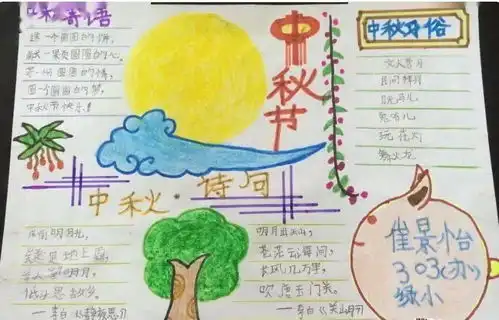 寄语
送一个圆圆的饼,
献一果页圆圆的心,
圆一个圆圆的梦,
中秋节快乐!
中秋节
中秋习俗
文人赏月
民间拜月
玩花灯
舞火龙
中秋·诗词
床前明月光,
疑是地上霜,
举头望明月,
低头思故乡。
——李白《静夜思》
明月出天山,
苍茫云海间,
长风几万里,
吹度玉门关。
——李白《关山月》
崔景怡
303(办)
绿小